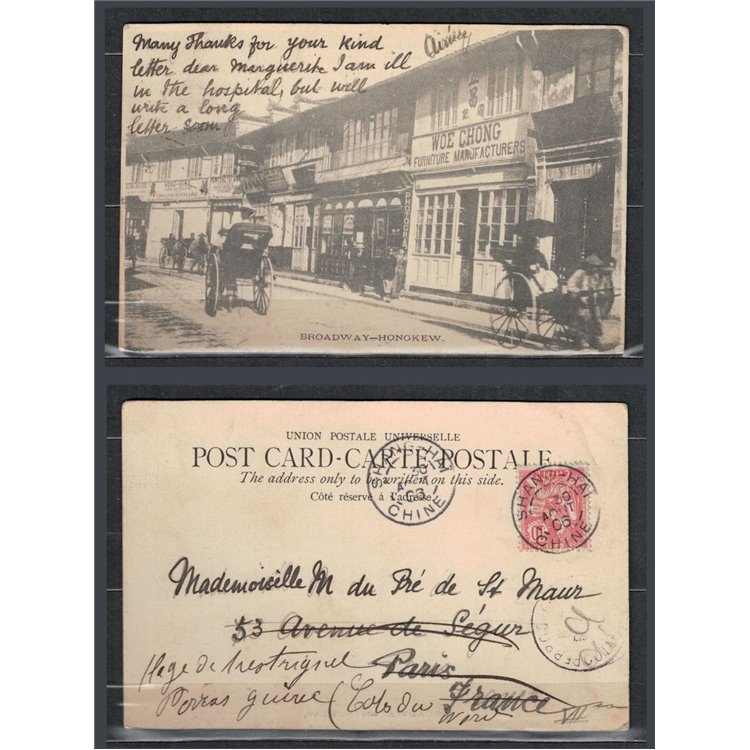 Many Thanks for your kind
letter dear Marguerite I am ill
in the hospital, but will
write a long
letter soon
Aimée
WOE CHONG
FURNITURE MANUFACTURERS
BROADWAY—HONGKEW.
UNION POSTALE UNIVERSELLE
POST CARD-CARTE POSTALE
The address only to be written on this side.
Côté réservé à l'adresse.
SHANG-HAI
CHINE
SHANG-HAI
30
AOUT
06
CHINE
10
Mademoiselle M du Pré de St Maur
53 Avenue de Ségur
Paris
France
Perros guirec (Cotes du
Nord
VII